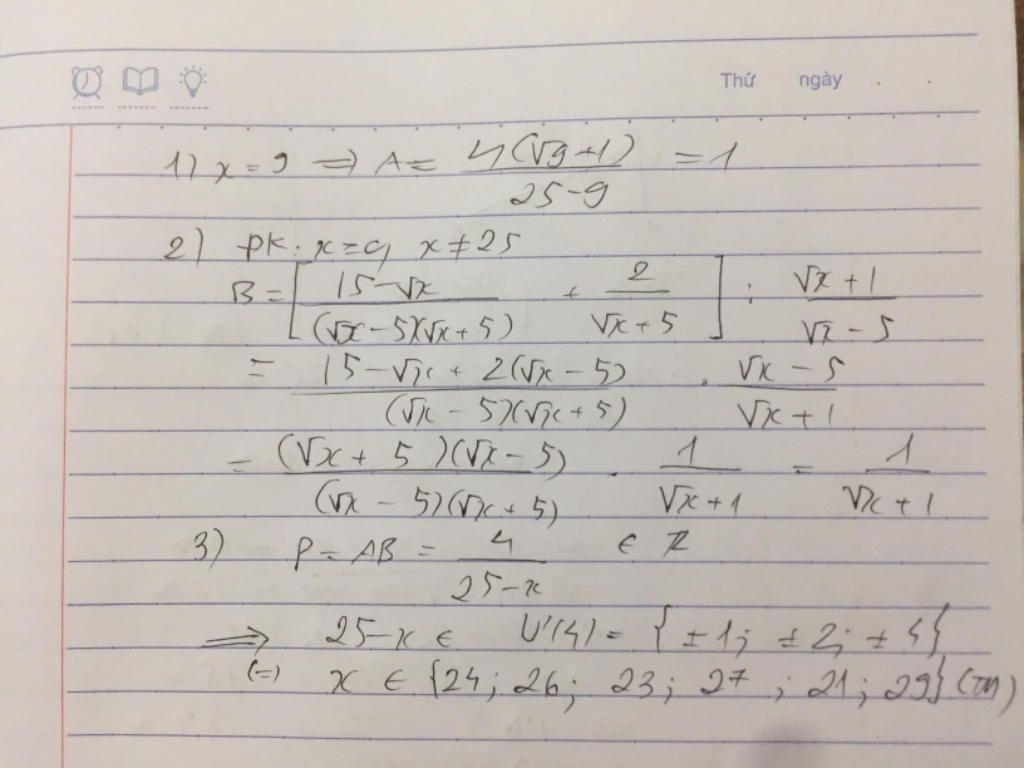 Thứ ngày . .
1) x = 9 => A = 4(√9+1)/(25-9) = 1
2) ĐK: x ≥ 0, x ≠ 25
B = [(15-√x)/((√x-5)(√x+5)) + 2/(√x+5)] : (√x+1)/(√x-5)
= (15-√x+2(√x-5))/((√x-5)(√x+5)) . (√x-5)/(√x+1)
= ((√x+5)(√x-5))/((√x-5)(√x+5)) . 1/(√x+1) = 1/(√x+1)
3) P = AB = 4/(25-x) ∈ Z
=> 25-x ∈ Ư(4) = {±1; ±2; ±4}
(=) x ∈ {24; 26; 23; 27; 21; 29} (TM)